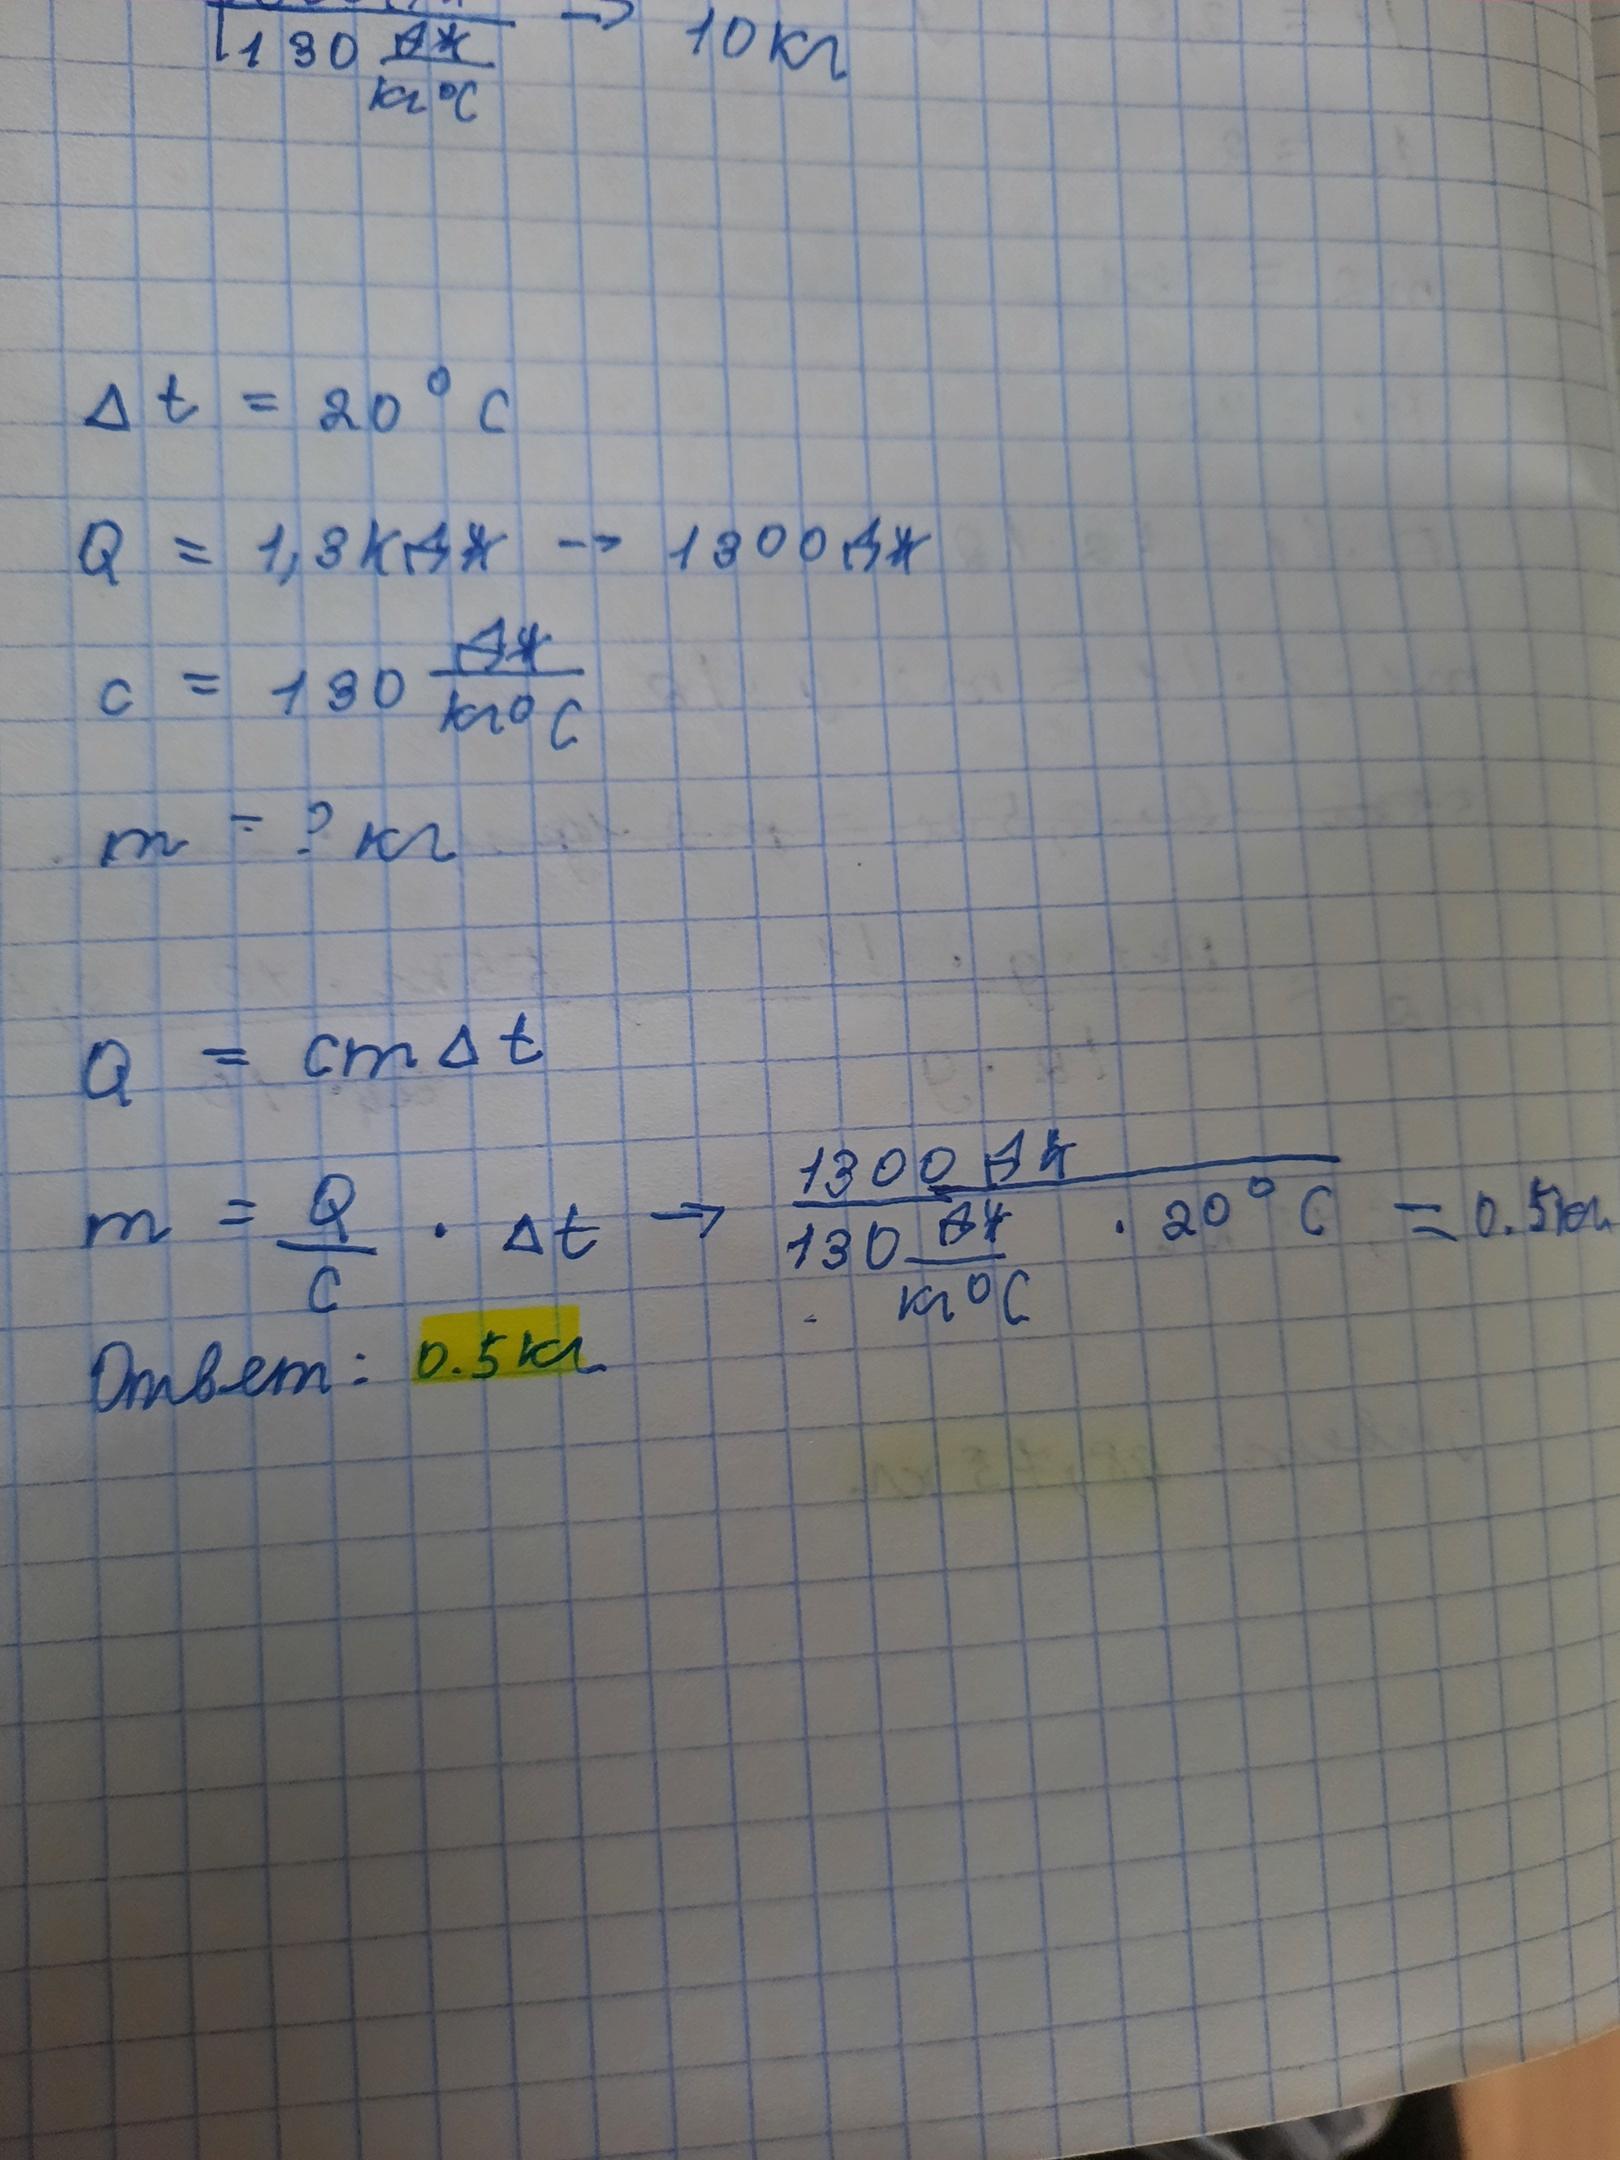 130 Дж/кг°C → 10кг
Δt = 20°C
Q = 1,3кДж → 1300Дж
c = 130 Дж/кг°C
m = ? кг
Q = cmΔt
m = Q/C · Δt → 1300Дж / 130 Дж/кг°C · 20°C = 0.5кг
Ответ: 0.5кг